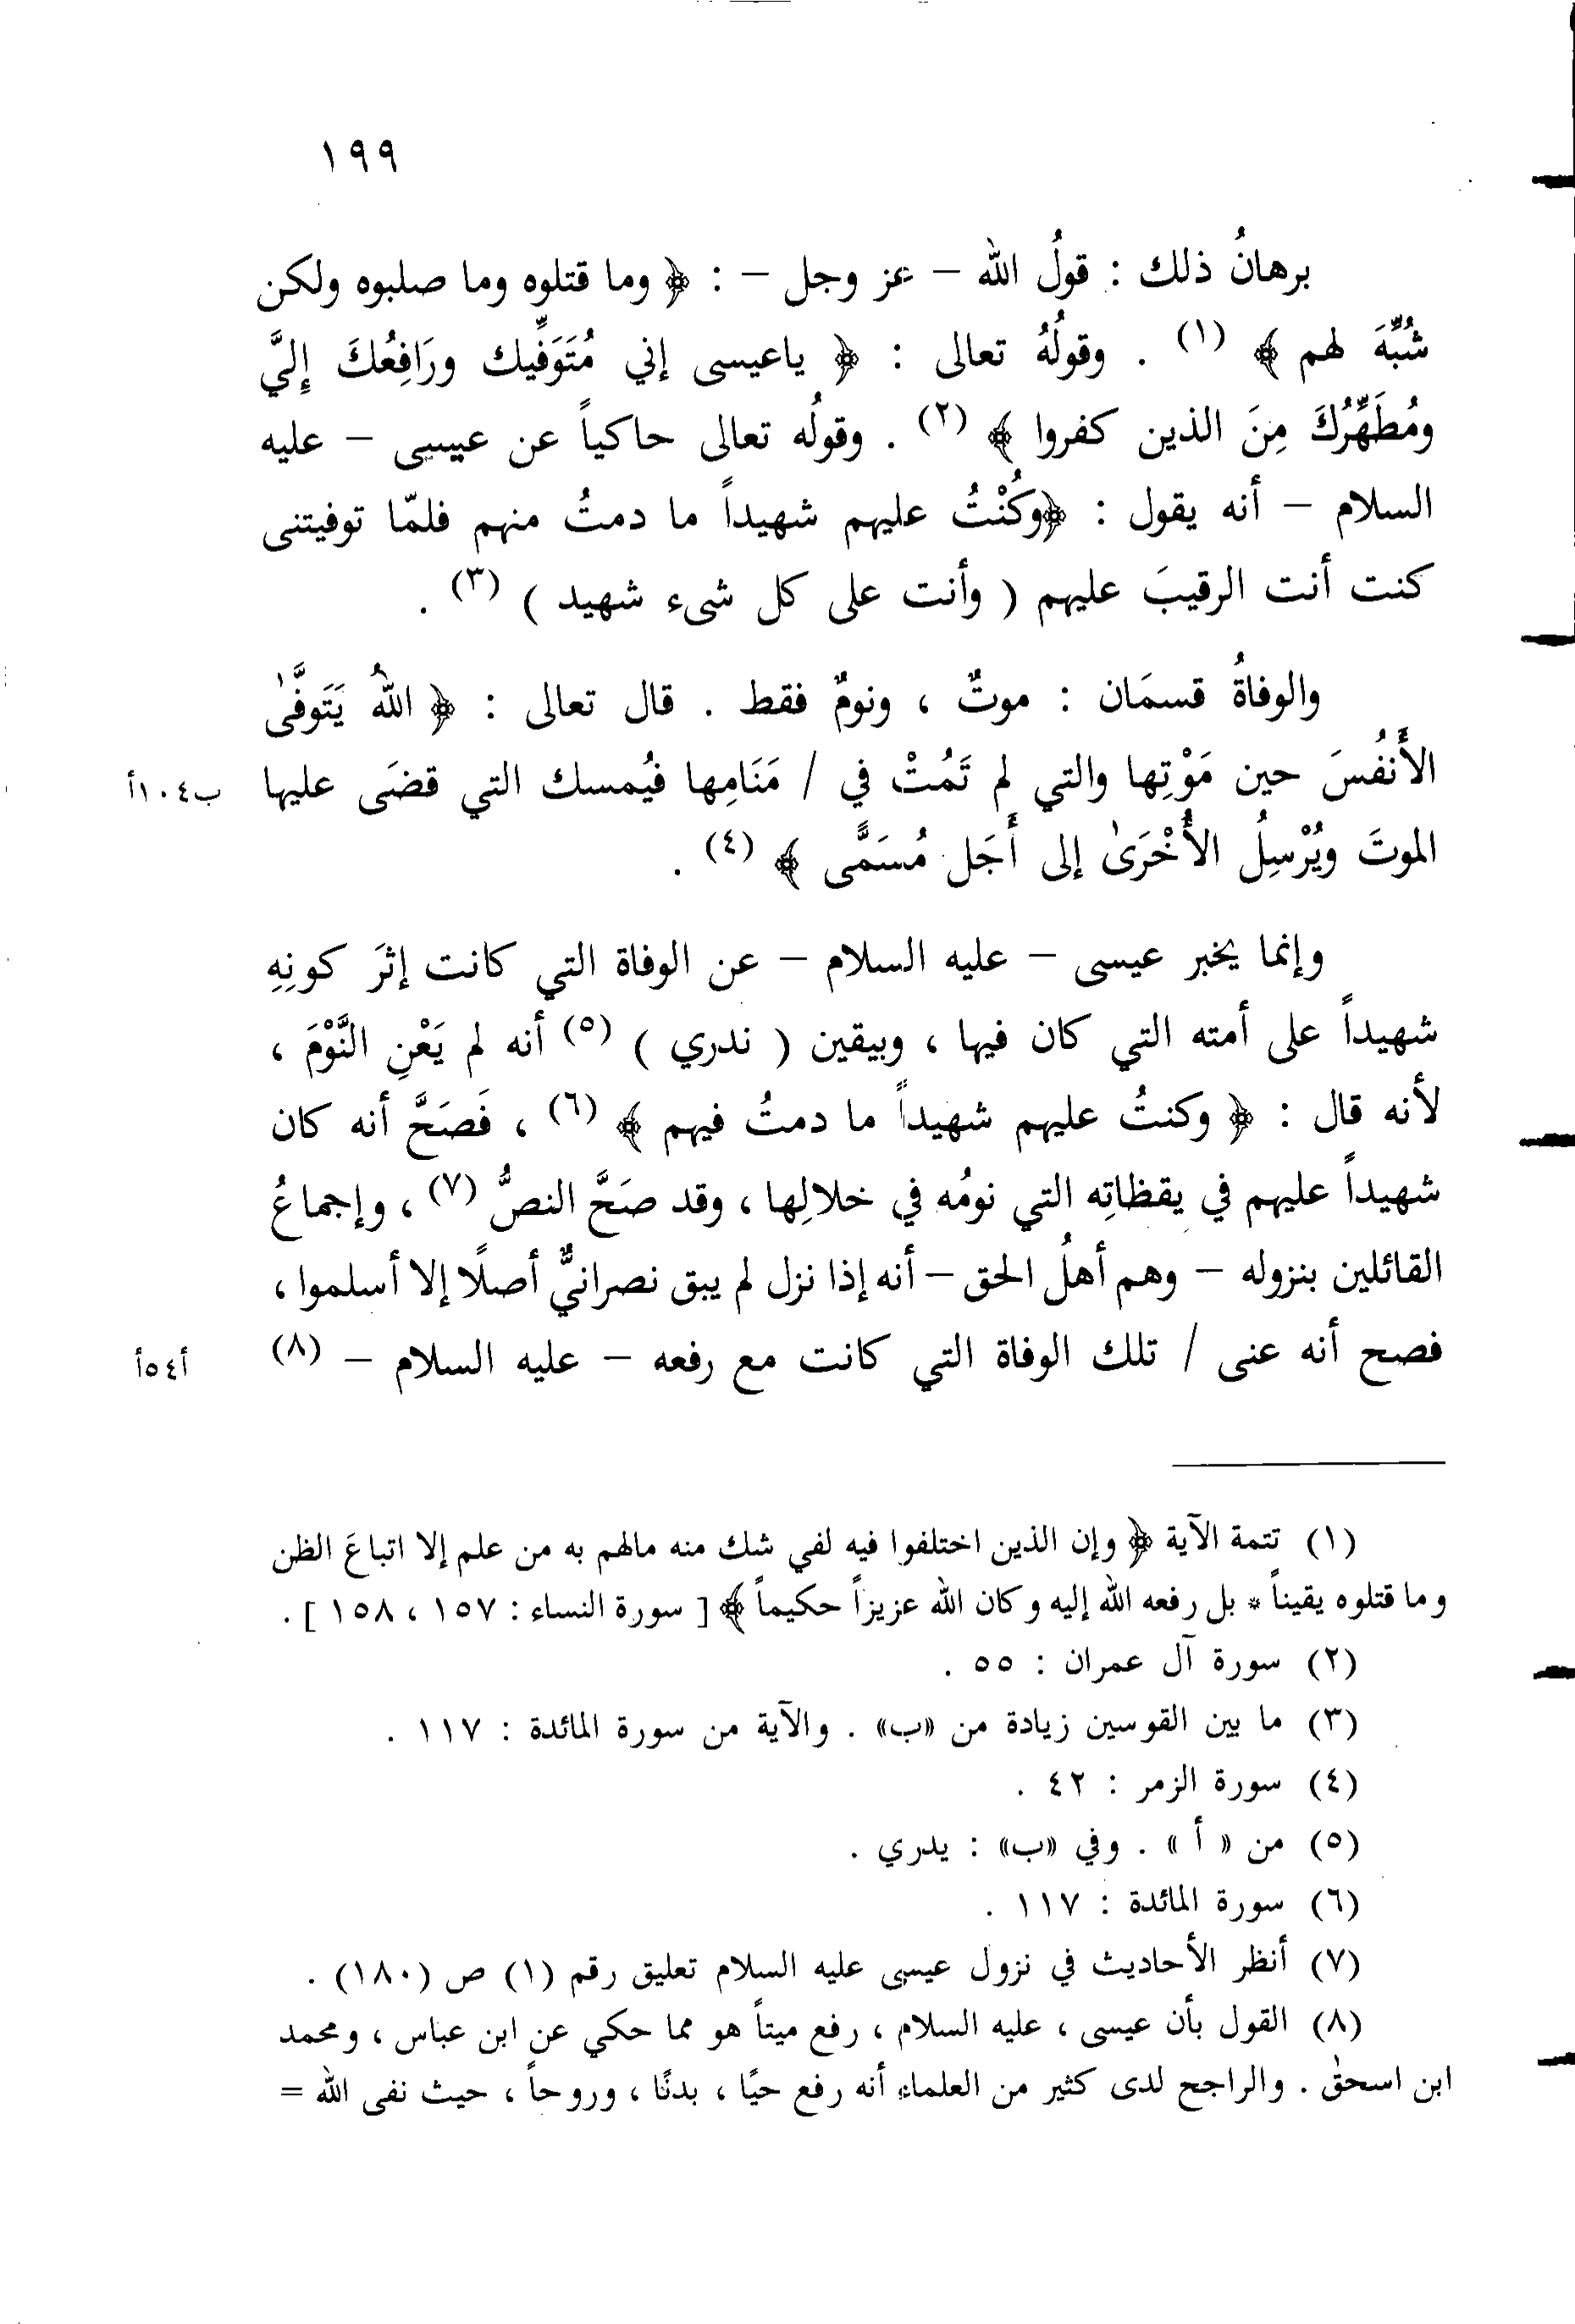 ١٩٩
برهانُ ذلك : قولُ الله – عز وجل – : ﴿ وما قتلوه وما صلبوه ولكن
شُبِّهَ لهم ﴾ (١) . وقولُهُ تعالى : ﴿ ياعيسى إني مُتَوَفِّيك ورَافِعُكَ إِليَّ
ومُطَهِّرُكَ مِنَ الذين كفروا ﴾ (٢) . وقولُه تعالى حاكياً عن عيسى – عليه
السلام – أنه يقول : ﴿وكُنْتُ عليهم شهيداً ما دمتُ منهم فلمّا توفيتنى
كنت أنت الرقيبَ عليهم ( وأنت على كل شىء شهيد ) (٣) .
والوفاةُ قسمَان : موتٌ ، ونومٌ فقط . قال تعالى : ﴿ اللهُ يَتَوفَّىٰ
الأَنفُسَ حين مَوْتِها والتي لم تَمُتْ في / مَنَامِها فيُمسك التي قضَى عليها ب١٠٤أ
الموتَ ويُرْسِلُ الأُخْرَىٰ إلى أَجَل مُسَمًّى ﴾ (٤) .
وإنما يخبر عيسى – عليه السلام – عن الوفاة التي كانت إثرَ كونِهِ
شهيداً على أمته التي كان فيها ، وبيقين ( ندري ) (٥) أنه لم يَعْنِ النَّوْمَ ،
لأنه قال : ﴿ وكنتُ عليهم شهيداً ما دمتُ فيهم ﴾ (٦) ، فَصَحَّ أنه كان
شهيداً عليهم في يقظاتِه التي نومُه في خلالِها ، وقد صَحَّ النصُّ (٧) ، وإجماعُ
القائلين بنزوله – وهم أهلُ الحق – أنه إذا نزل لم يبق نصرانيٌّ أصلًا إلا أسلموا ،
فصح أنه عنى / تلك الوفاة التي كانت مع رفعه – عليه السلام – (٨) أ٥٤أ
(١) تتمة الآية ﴿ وإن الذين اختلفوا فيه لفي شك منه مالهم به من علم إلا اتباعَ الظن
وما قتلوه يقيناً * بل رفعه الله إليه وكان الله عزيزاً حكيماً ﴾ [ سورة النساء : ١٥٧ ، ١٥٨ ] .
(٢) سورة آل عمران : ٥٥ .
(٣) ما بين القوسين زيادة من «ب» . والآية من سورة المائدة : ١١٧ .
(٤) سورة الزمر : ٤٢ .
(٥) من « أ » . وفي «ب» : يدري .
(٦) سورة المائدة : ١١٧ .
(٧) أنظر الأحاديث في نزول عيسى عليه السلام تعليق رقم (١) ص (١٨٠) .
(٨) القول بأن عيسى ، عليه السلام ، رفع ميتاً هو مما حكي عن ابن عباس ، ومحمد
ابن اسحٰق . والراجح لدى كثير من العلماء أنه رفع حيًا ، بدنًا ، وروحاً ، حيث نفى الله =